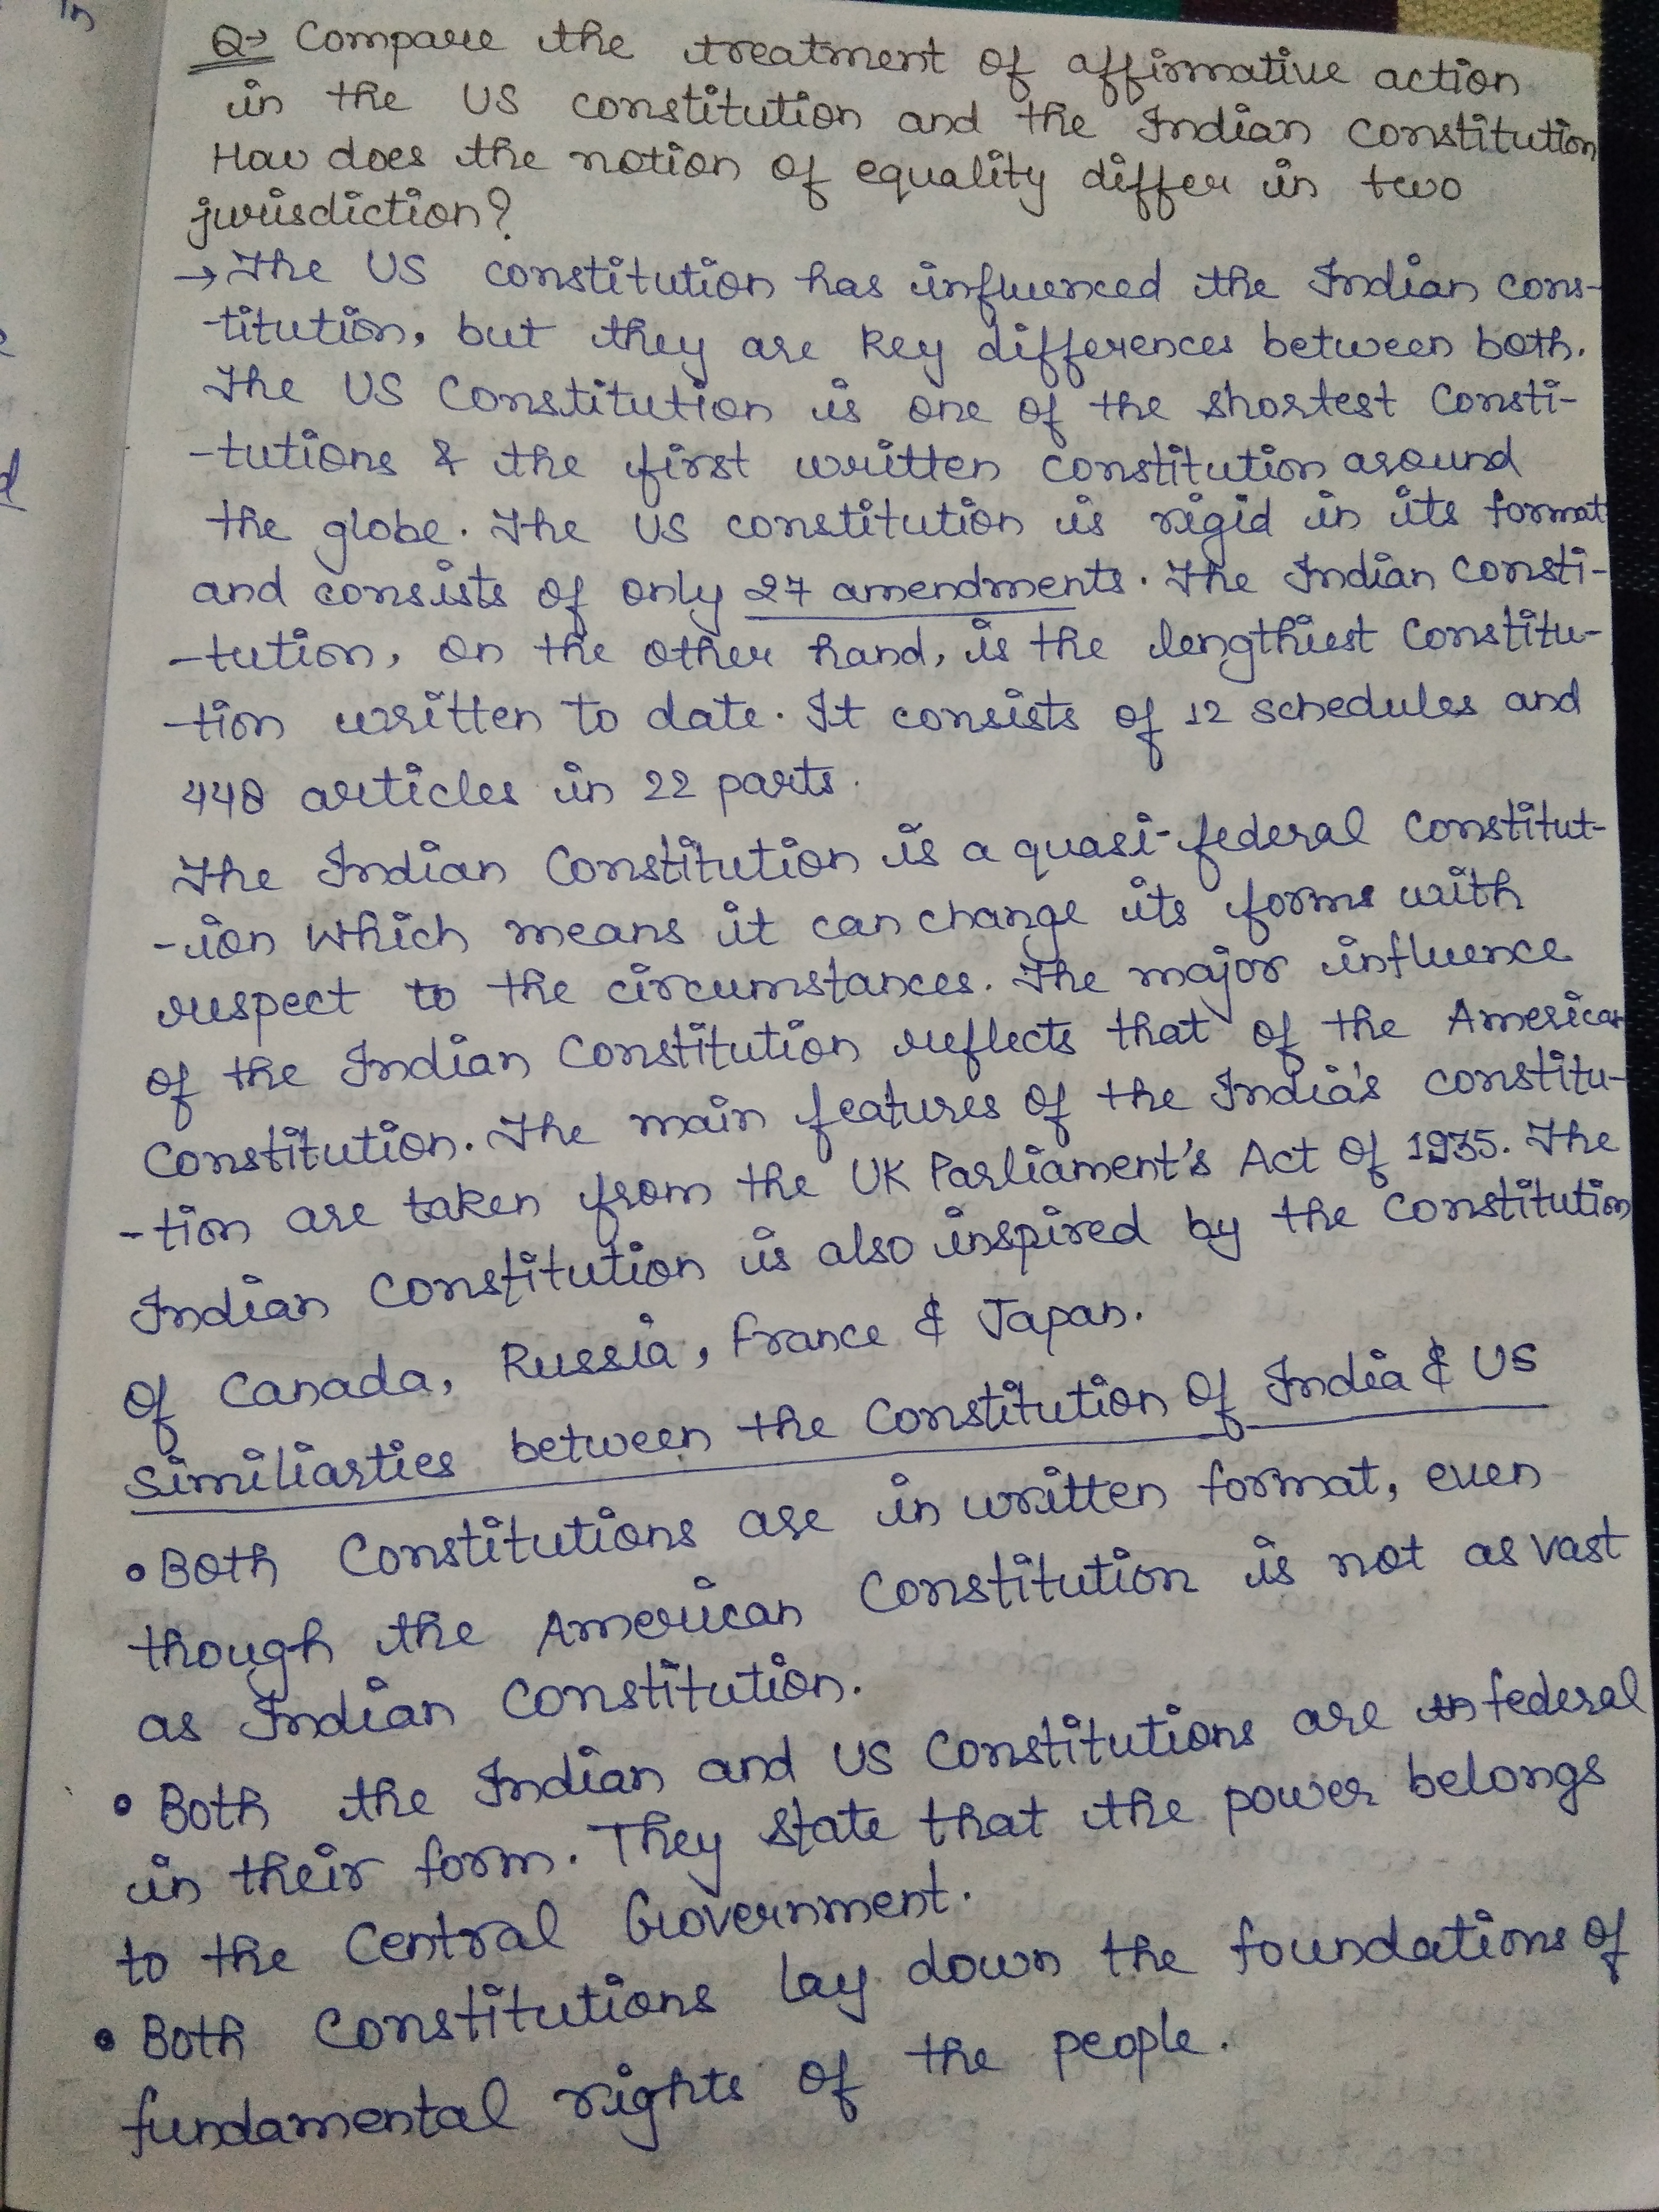 Q→ Compare the treatment of affirmative action
in the US constitution and the Indian Constitution
How does the notion of equality differ in two
jurisdiction?
→ The US constitution has influenced the Indian cons-
-titution, but they are key differences between both.
The US Constitution is one of the shortest Consti-
-tutions & the first written constitution around
the globe. The US constitution is rigid in its format
and consists of only 27 amendments. The Indian Consti-
-tution, on the other hand, is the lengthiest Constitu-
-tion written to date. It consists of 12 schedules and
448 articles in 22 parts.
The Indian Constitution is a quasi-federal Constitut-
-ion which means it can change its forms with
respect to the circumstances. The major influence
of the Indian Constitution reflects that of the American
Constitution. The main features of the India's constitu-
-tion are taken from the UK Parliament's Act of 1935. The
Indian Constitution is also inspired by the Constitution
of Canada, Russia, France & Japan.
Similiarties between the Constitution of India & US
• Both Constitutions are in written format, even
though the American Constitution is not as vast
as Indian Constitution.
• Both the Indian and US Constitutions are federal
in their form. They state that the power belongs
to the Central Government.
• Both Constitutions lay down the foundations of
fundamental rights of the people.